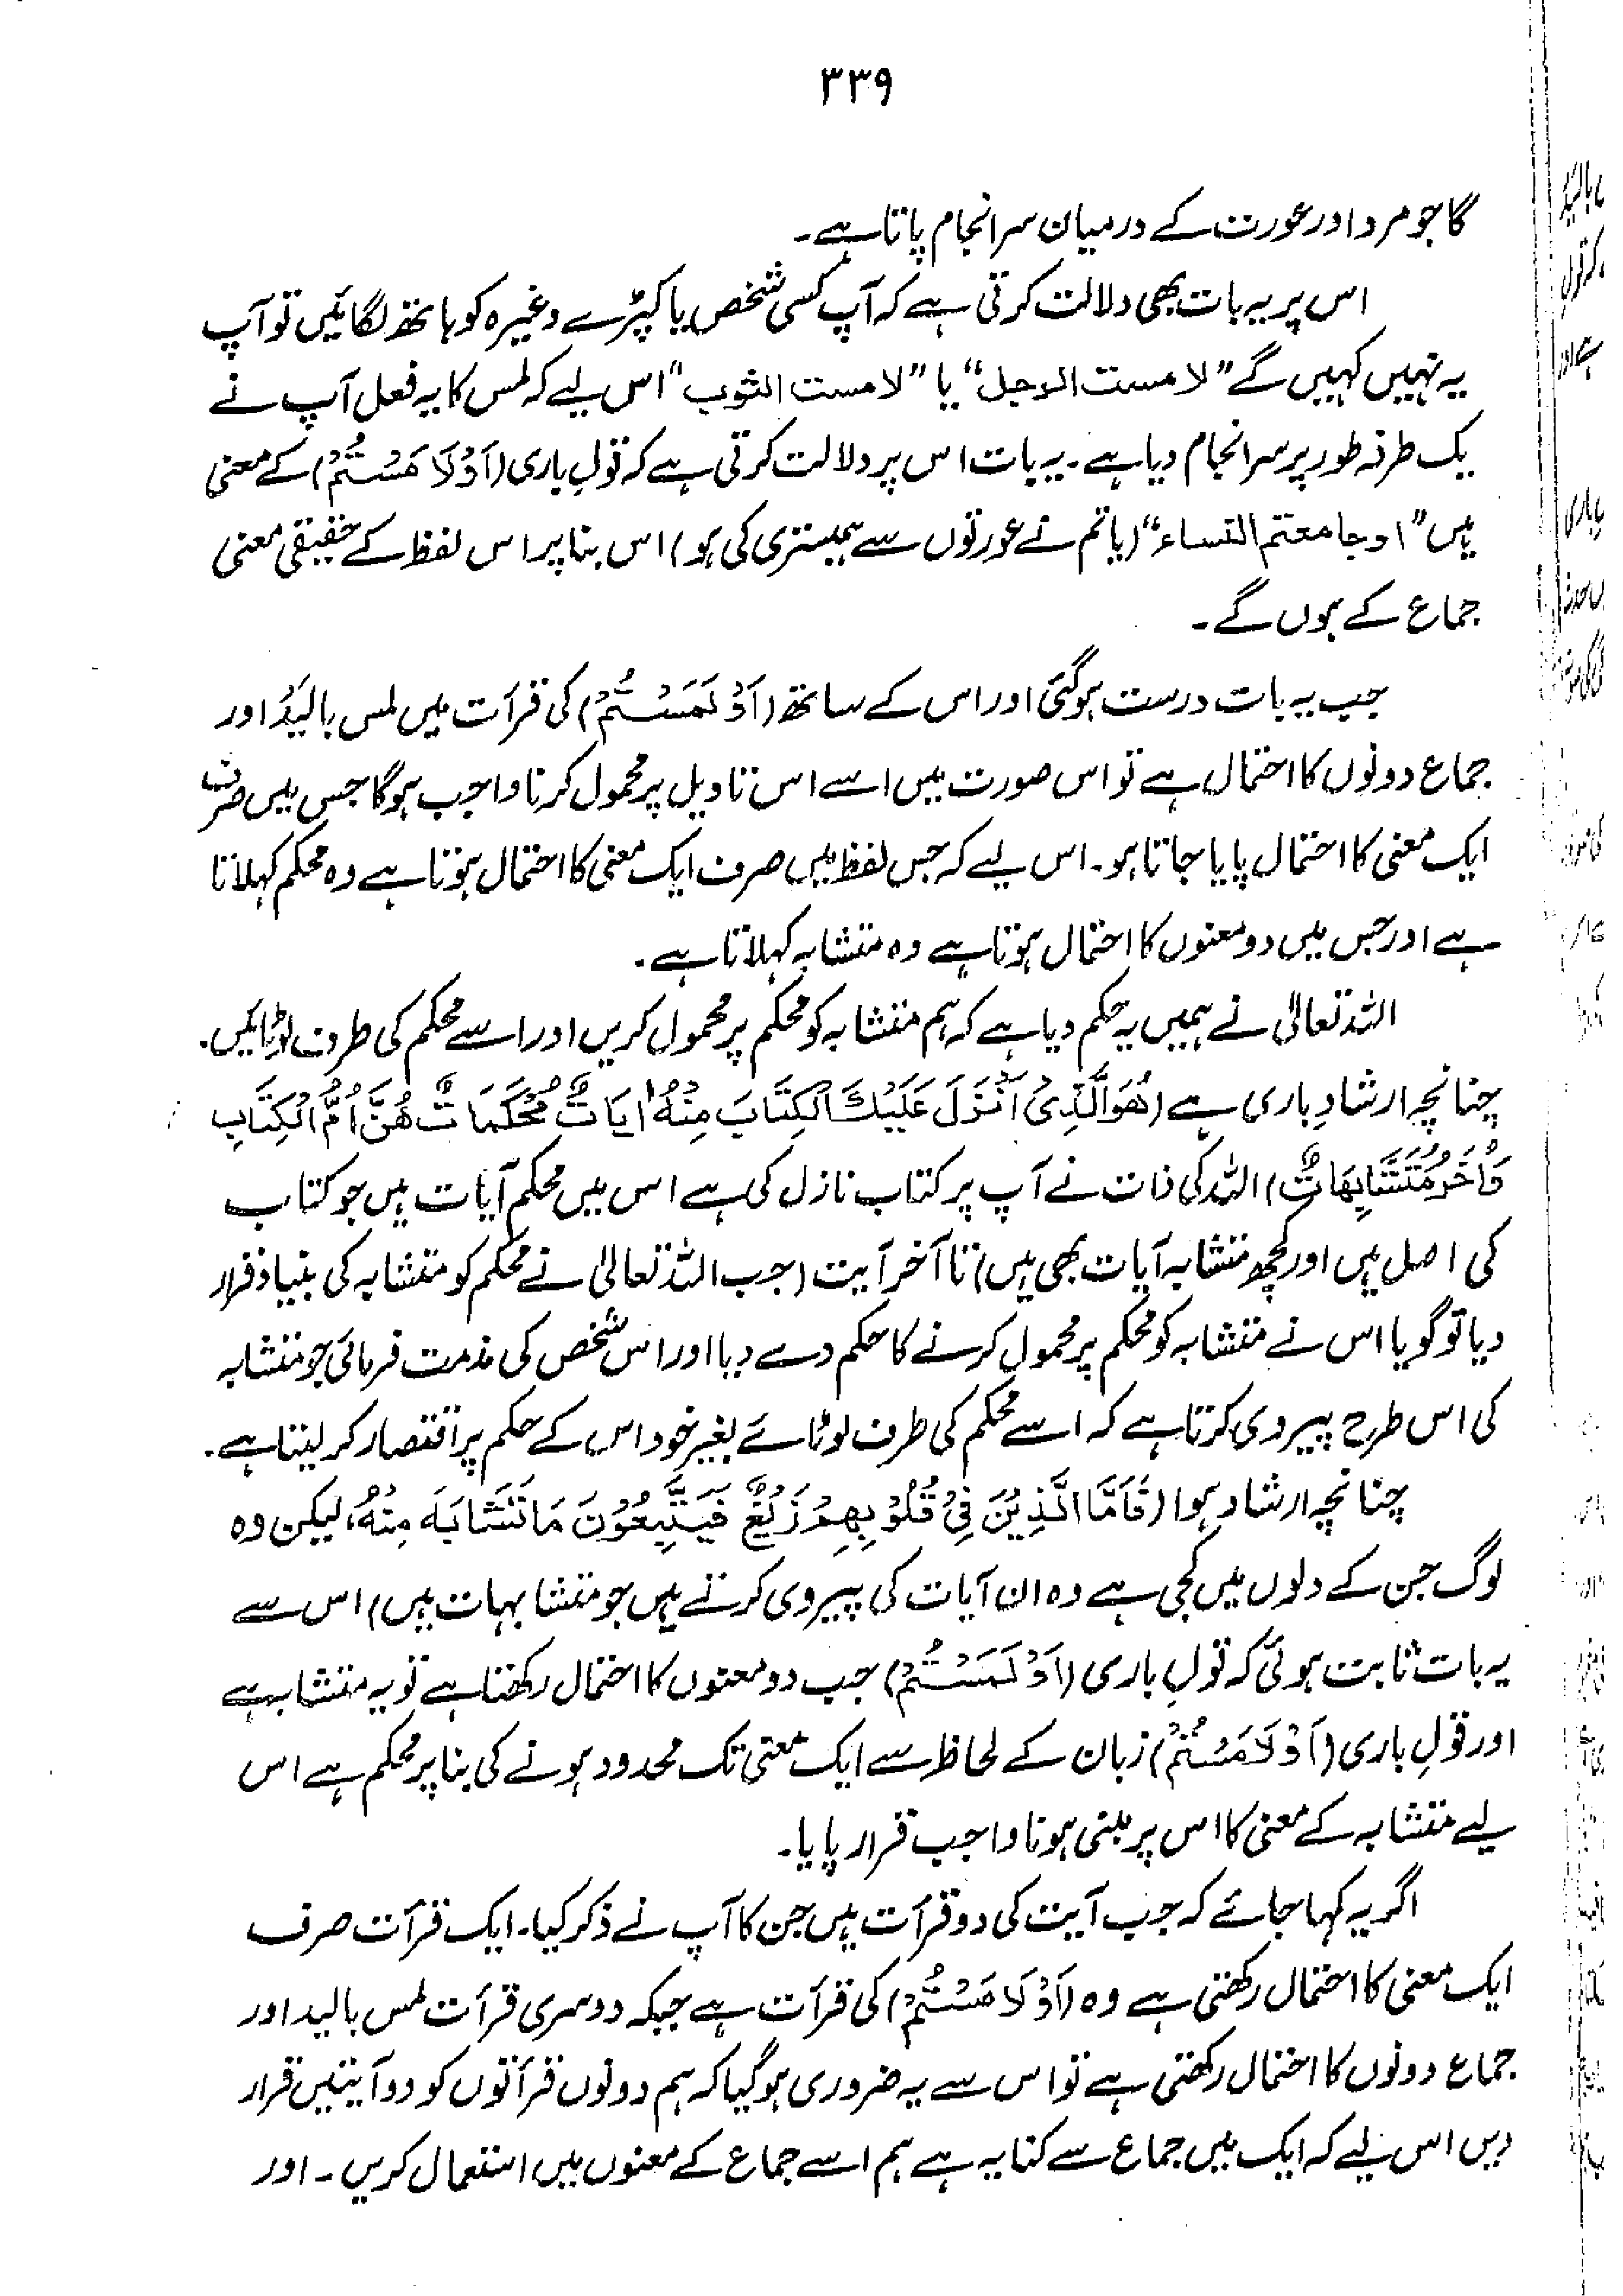 ۳۳۹
گا جو مرد اور عورت کے درمیان سرانجام پاتا ہے۔
اس پر یہ بات بھی دلالت کرتی ہے کہ آپ کسی شخص یا کپڑے وغیرہ کو ہاتھ لگائیں تو آپ
یہ نہیں کہیں گے "لامست الرجل" یا "لامست الثوب" اس لیے کہ لمس کا یہ فعل آپ نے
یک طرفہ طور پر سرانجام دیا ہے۔ یہ بات اس پر دلالت کرتی ہے کہ قولِ باری (اَوْ لَا مَسْتُمُ) کے معنی
ہیں "اوجامعتم النساء" (یا تم نے عورتوں سے ہمبستری کی ہو) اس بنا پر اس لفظ کے حقیقی معنی
جماع کے ہوں گے۔
جب یہ بات درست ہوگئی اور اس کے ساتھ (اَوْ لَمَسْتُمُ) کی قرآت میں لمس بالیَدُ اور
جماع دونوں کا احتمال ہے تو اس صورت میں اسے اس تاویل پر محمول کرنا واجب ہوگا جس میں صرف
ایک معنی کا احتمال پایا جاتا ہو۔ اس لیے کہ جس لفظ میں صرف ایک معنی کا احتمال ہوتا ہے وہ محکم کہلاتا
ہے اور جس میں دو معنوں کا احتمال ہوتا ہے وہ متشابہ کہلاتا ہے۔
اللہ تعالیٰ نے ہمیں یہ حکم دیا ہے کہ ہم متشابہ کو محکم پر محمول کریں اور اسے محکم کی طرف لوٹائیں۔
چنانچہ ارشادِ باری ہے (هُوَ الَّذِیْ اَنْزَلَ عَلَیْكَ الْكِتَابَ مِنْهُ اٰیَاتٌ مُّحْكَمَاتٌ هُنَّ اُمُّ الْكِتَابِ
وَاُخَرُ مُتَشَابِهَاتٌ) اللہ کی ذات نے آپ پر کتاب نازل کی ہے اس میں محکم آیات ہیں جو کتاب
کی اصل ہیں اور کچھ متشابہ آیات بھی ہیں) تا آخر آیت (جب اللہ تعالیٰ نے محکم کو متشابہ کی بنیاد قرار
دیا تو گویا اس نے متشابہ کو محکم پر محمول کرنے کا حکم دے دیا اور اس شخص کی مذمت فرمائی جو متشابہ
کی اس طرح پیروی کرتا ہے کہ اسے محکم کی طرف لوٹائے بغیر خود اس کے حکم پر اقتصار کر لیتا ہے۔
چنانچہ ارشاد ہوا (فَاَمَّا الَّذِیْنَ فِیْ قُلُوْبِهِمْ زَیْغٌ فَیَتَّبِعُوْنَ مَا تَشَابَهَ مِنْهُ، لیکن وہ
لوگ جن کے دلوں میں کجی ہے وہ ان آیات کی پیروی کرتے ہیں جو متشابہات ہیں) اس سے
یہ بات ثابت ہوئی کہ قولِ باری (اَوْ لَمَسْتُمُ) جب دو معنوں کا احتمال رکھتا ہے تو یہ متشابہ ہے
اور قولِ باری (اَوْ لَا مَسْتُمُ) زبان کے لحاظ سے ایک معنی تک محدود ہونے کی بنا پر محکم ہے اس
لیے متشابہ کے معنی کا اس پر مبنی ہونا واجب قرار پایا۔
اگر یہ کہا جائے کہ جب آیت کی دو قرآت ہیں جن کا آپ نے ذکر کیا۔ ایک قرآت صرف
ایک معنی کا احتمال رکھتی ہے وہ (اَوْ لَا مَسْتُمُ) کی قرآت ہے جبکہ دوسری قرآت لمس بالید اور
جماع دونوں کا احتمال رکھتی ہے تو اس سے یہ ضروری ہوگیا کہ ہم دونوں قرآتوں کو دو آیتیں قرار
دیں اس لیے کہ ایک میں جماع سے کنایہ ہے ہم اسے جماع کے معنوں میں استعمال کریں۔ اور